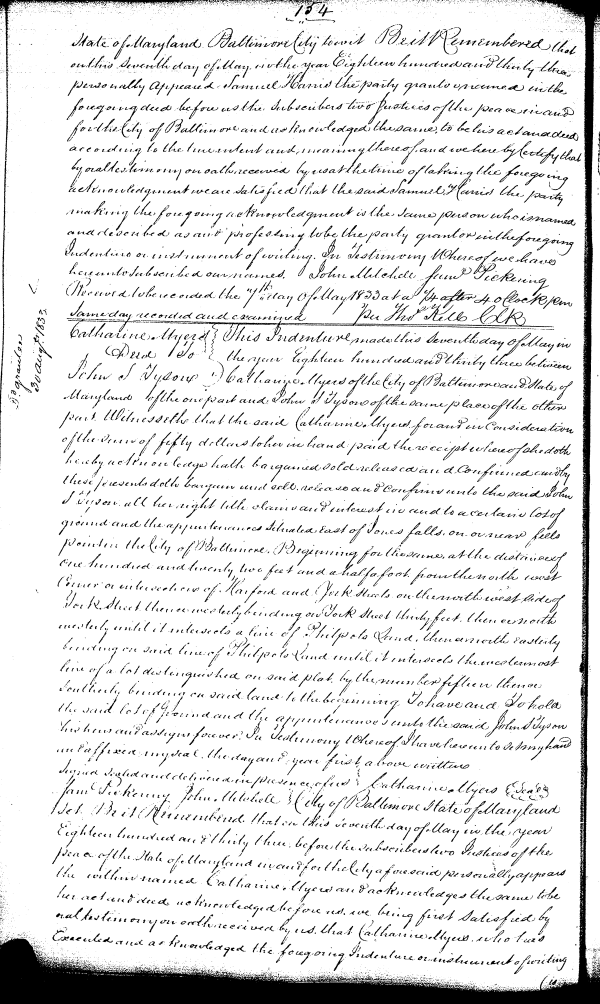 154
State of Maryland Baltimore City to wit Be it Remembered that
on this seventh day of May in the year Eighteen hundred and thirty three
personally appeared Samuel Harris the party grantor named in the
foregoing deed before us the subscribers two Justices of the peace in and
for the City of Baltimore and acknowledged the same, to be his act and deed
according to the true intent and meaning thereof, and we hereby Certify that
by oral testimony on oath received by us at the time of taking the foregoing
acknowledgment we are satisfied that the said Samuel Harris the party
making the foregoing acknowledgment is the same person who is named
and described as and professing to be the party grantor in the foregoing
Indenture or instrument of writing. In Testimony Whereof we have
hereunto subscribed our names. John Mitchell Jams Pickering
Received to be recorded the 7th day of May 1833 at a 1/4 after 4 oClock pm
Same day recorded and examined per Thos Kell Clk
Catharine Myers } This Indenture made this seventh day of May in
Deed To } the year Eighteen hundred and thirty three between
John S Tyson } Catharine Myers of the City of Baltimore and State of
30 aug. 1833
Maryland of the one part and John S Tyson of the same place of the other
part Witnesseth that the said Catharine Myers for and in Consideration
of the sum of fifty dollars to her in hand paid the receipt whereof she doth
hereby acknowledge hath bargained sold released and Confirmed and by
these presents doth bargain and sell release and Confirm unto the said John
S Tyson all her right title claim and interest in and to a certain lot of
ground and the appurtenances situated East of Jones falls on or near fells
point in the City of Baltimore. Beginning for the same at the distance of
one hundred and twenty two feet and a half a foot from the north west
Corner or intersection of Harford and York Streets on the north west side of
York Street thence westerly binding on York Street thirty feet, thence north
westerly until it intersects a line of Philpots Land, thence north easterly
binding on said line of Philpots Land until it intersects the westernmost
line of a lot distinguished on said plat by the number fifteen thence
southerly binding on said land to the beginning. To have and To hold
the said lot of Ground and the appurtenances unto the said John S Tyson
his heirs and assigns forever. In Testimony Whereof I have hereunto set my hand
and affixed my seal the day and year first above written
Signed Sealed and delivered in presence of us } Catharine Myers (Seal)
Jams Pickering John Mitchell } City of Baltimore State of Maryland
Set. Be it Remembered that on this seventh day of May in the year
Eighteen hundred and thirty three before the subscribers two Justices of the
peace of the State of Maryland in and for the City aforesaid personally appears
the within named Catharine Myers and acknowledges the same to be
her act and deed acknowledged before us, we being first satisfied by
oral testimony on oath received by us, that Catharine Myers who has
Executed and acknowledged the foregoing Indenture or instrument of writing